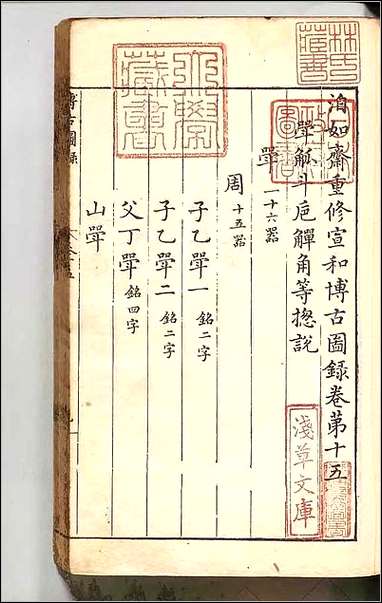 泊如齋重修宣和博古圖録卷第十五
斝觚斗巵觶角等揔說
斝 一十六器
周 十五器
子乙斝一 銘二字
子乙斝二 銘二字
父丁斝 銘四字
山斝
林氏藏書
淺草文庫
博古圖録